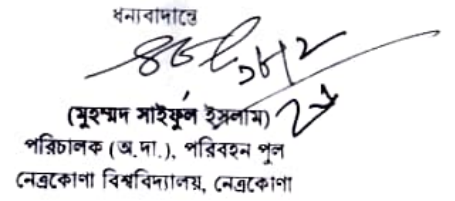 ধন্যবাদান্তে
(মুহম্মদ সাইফুল ইসলাম)
পরিচালক (অ.দা.), পরিবহন পুল
নেত্রকোণা বিশ্ববিদ্যালয়, নেত্রকোণা